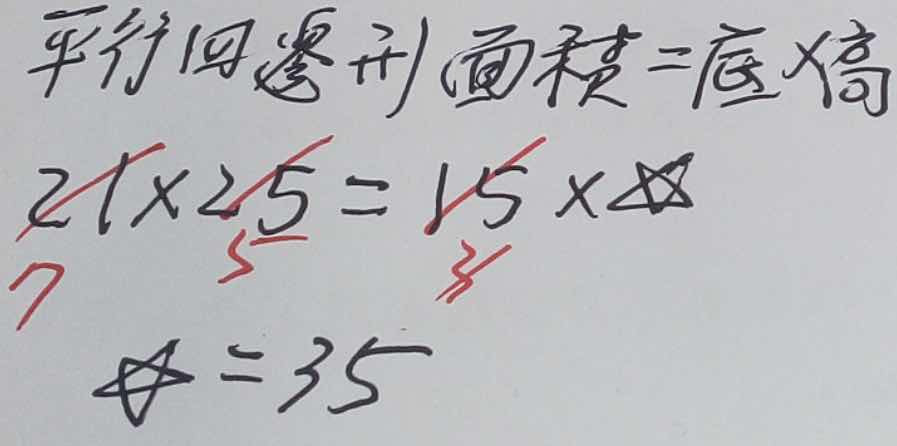 平行四邊形面積=底×高
21×25=15×☆
7 5 3
☆=35